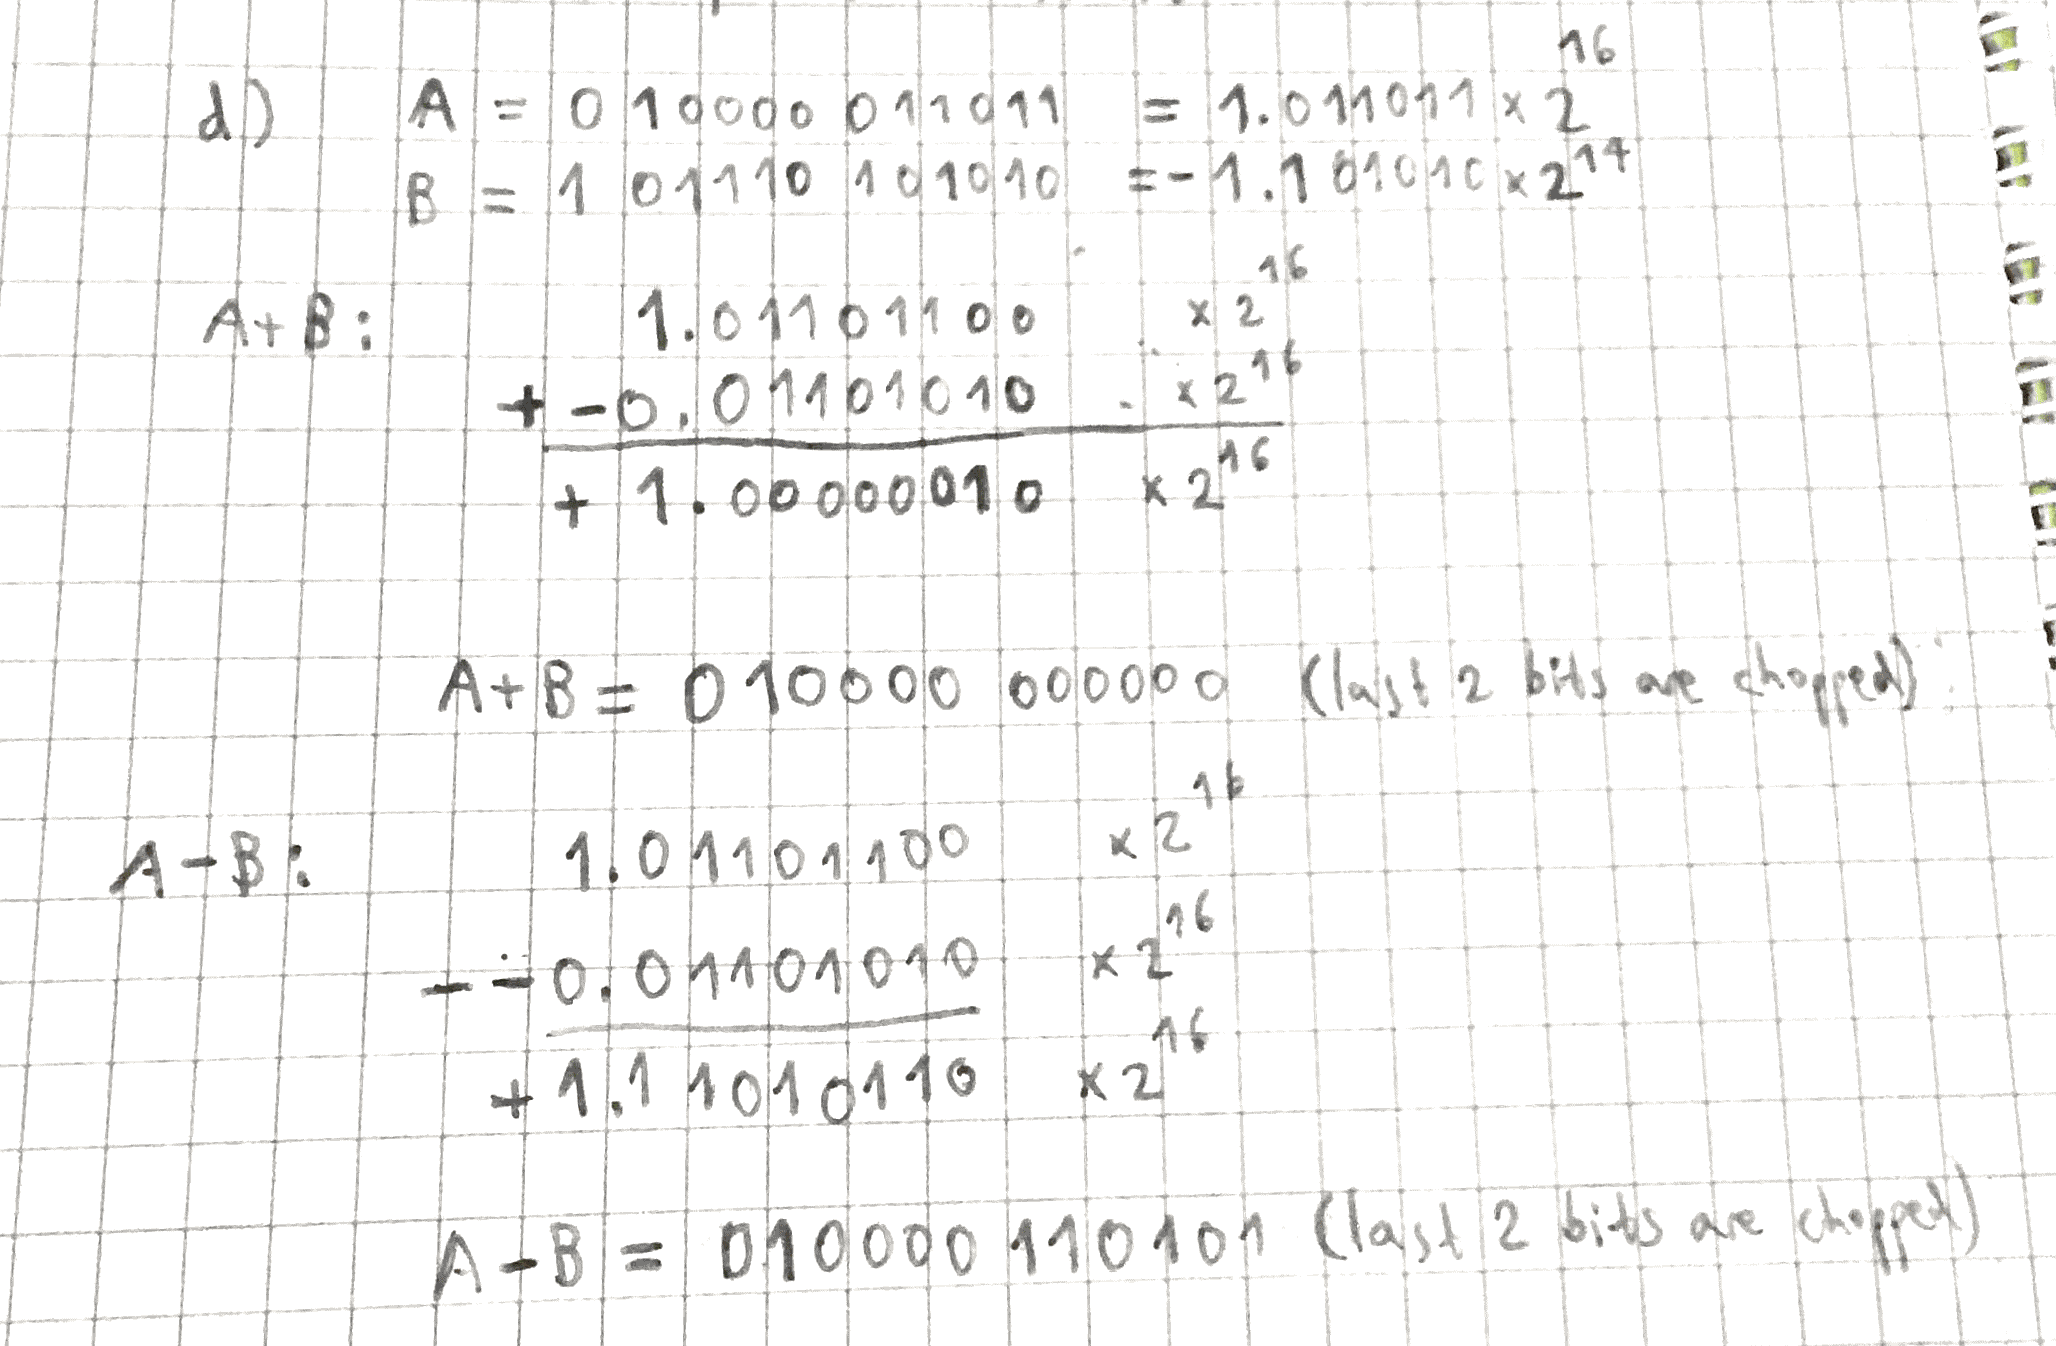 d) A = 0 10000 011011 = 1.011011 × 2^16
B = 1 01110 101010 = -1.101010 × 2^14
A+B: 1.01101100 × 2^16
+ -0.01101010 × 2^16
+ 1.00000010 × 2^16
A+B = 010000 000000 (last 2 bits are chopped)
A-B: 1.01101100 × 2^16
- -0.01101010 × 2^16
+ 1.11010110 × 2^16
A-B = 010000 110101 (last 2 bits are chopped)